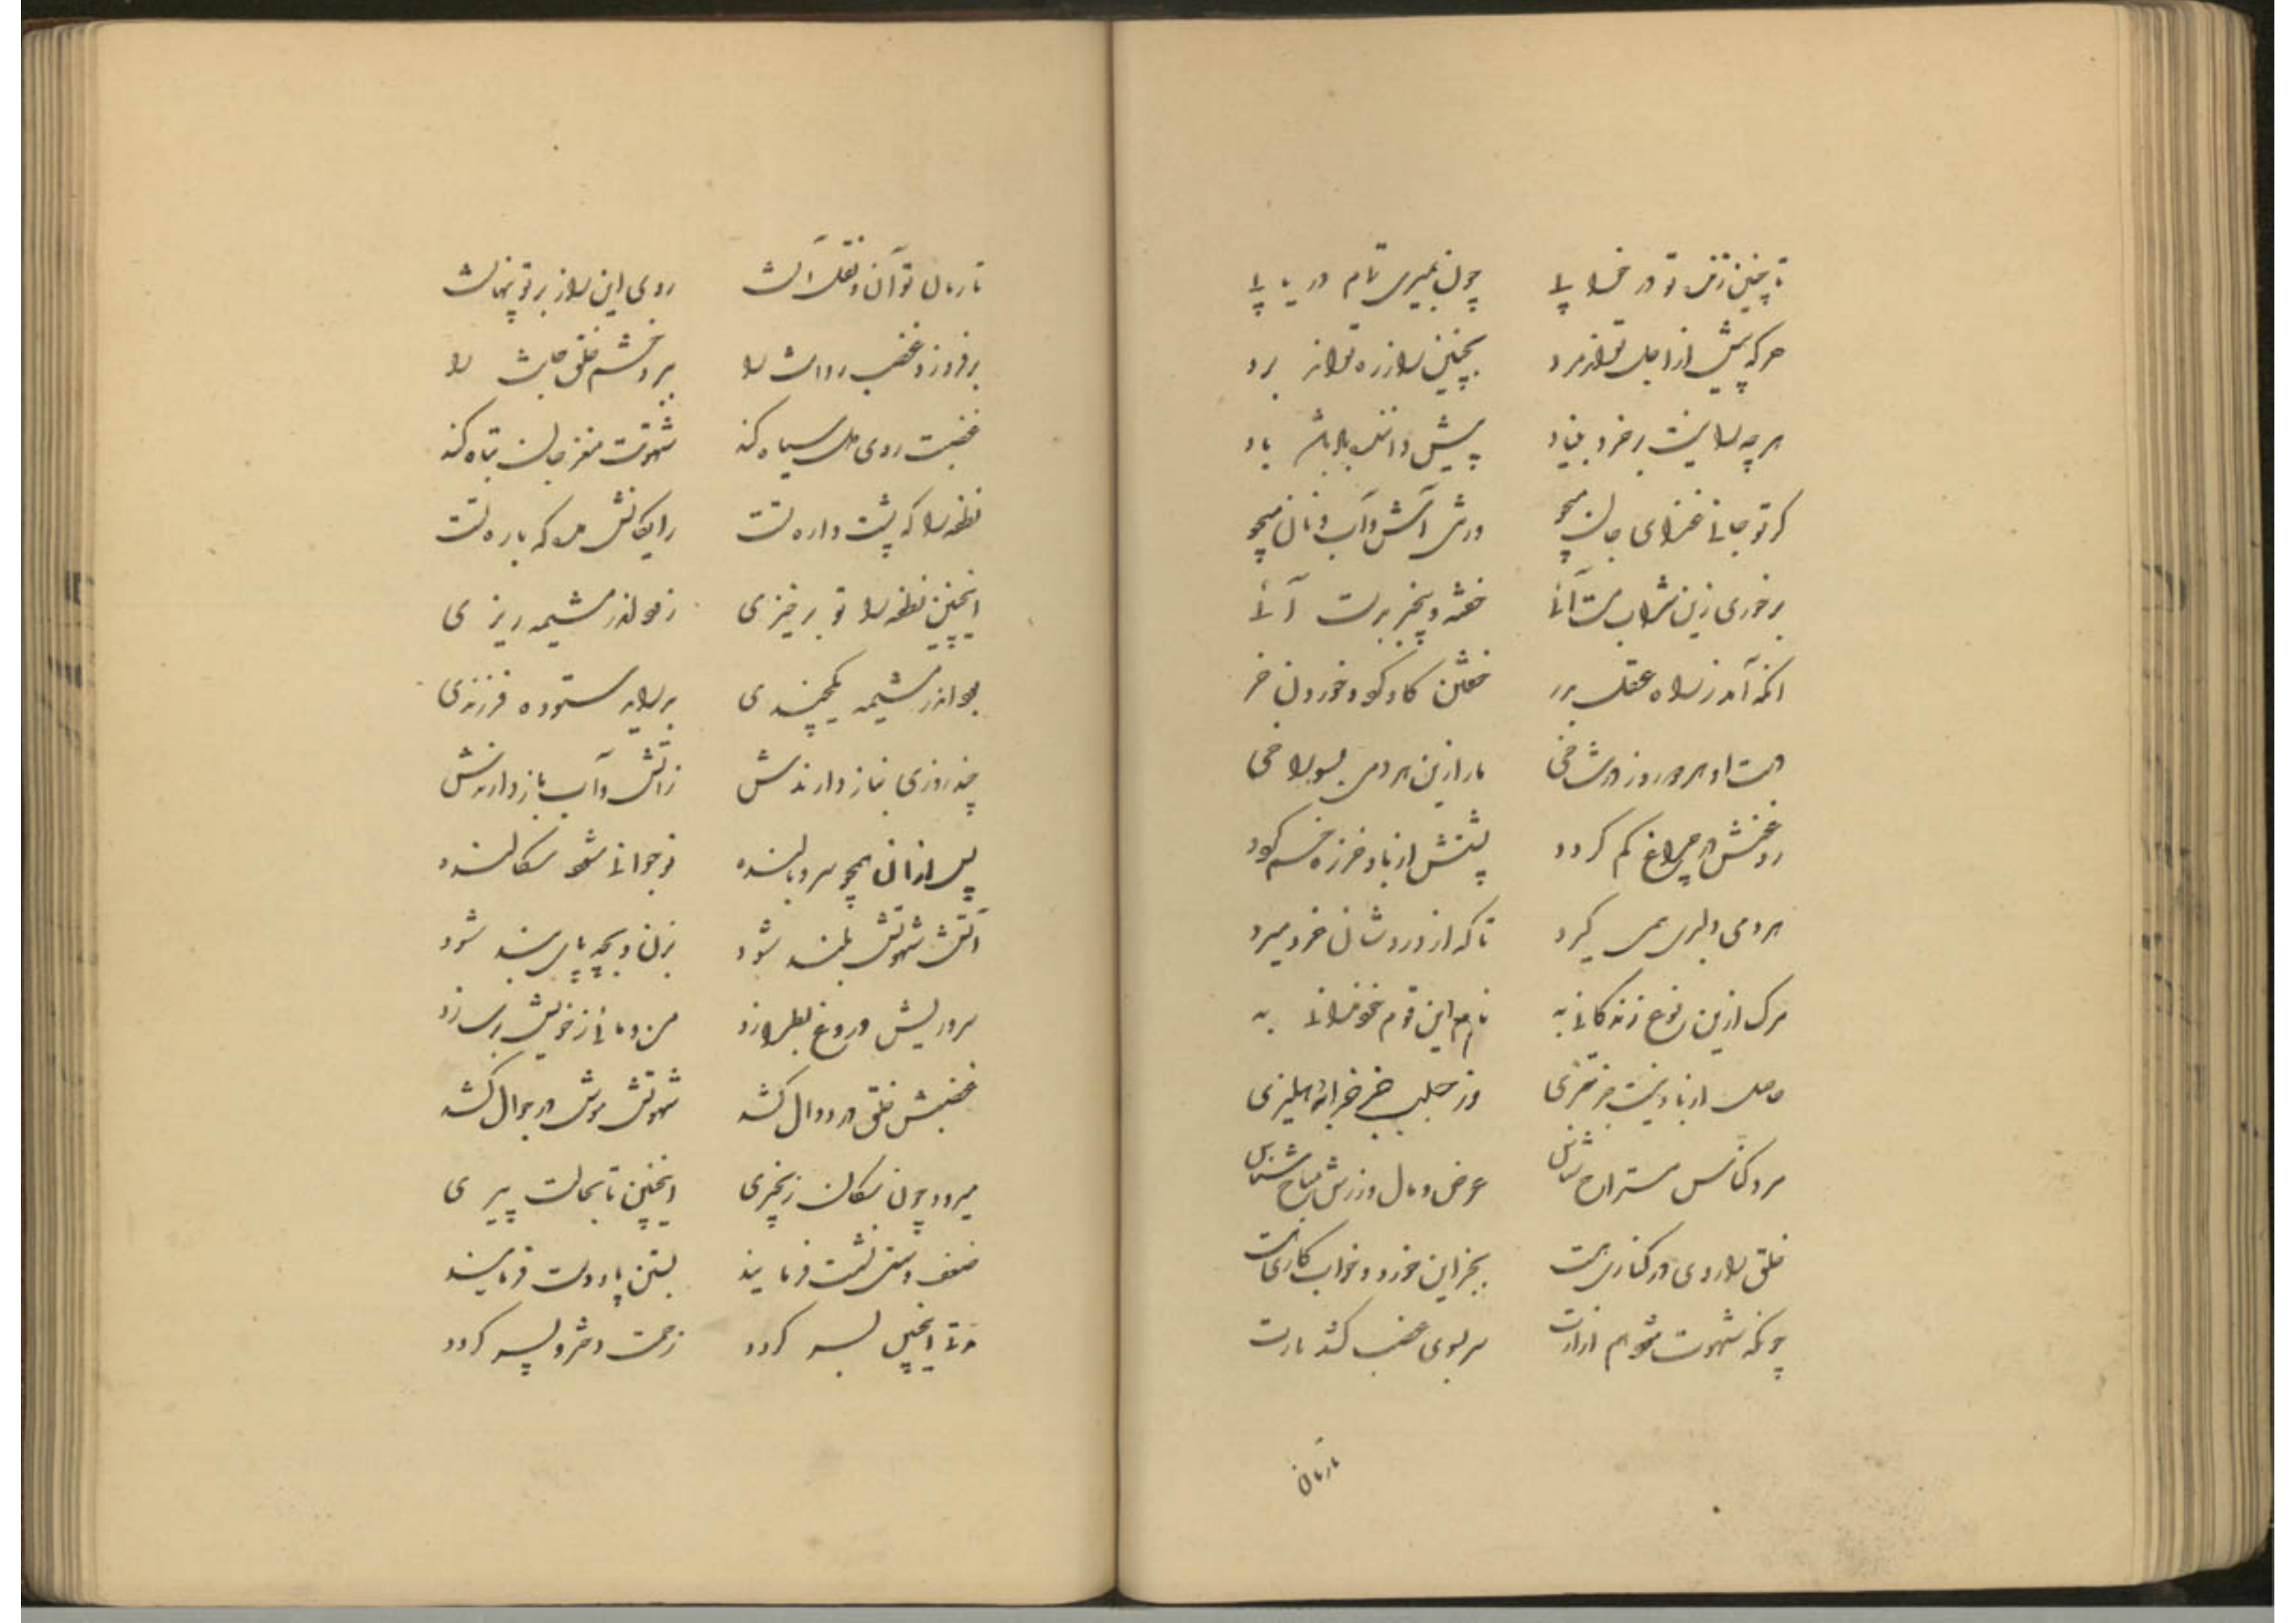 تا چنین زنی تو در خلا پلا چون بمیری تمام دریا پلا
هرکه پیش از اجل تواند مرد همچنین راز ره تواند برد
هرچه را نیست بر خرد بنیاد پیش دانندهٔ باد باشد باد
گر تو جانی غذای جان میجو ورنی آتش و آب و نان میجو
برخوری زین شراب مست آئی خفته و بیخبر بدست آئی
آنکه آمد ز راه عقل بدر خفتن گاو کو و خوردن خر
دست او هر دو روز در شاخی مار ازین هر دمی بسوراخی
روغنش در چراغ کم گردد پشتش از باد خرزه خم گردد
هر دمی دلبری همی گیرد تا که از درد شان فرو میرد
مرگ ازین نوع زندگانی به نام این قوم نخوانی به
حاصل از باد نیست جز تیزی
مرد کناس مستراح شناس عرض و مال ورزش مباح شناس
خلق را روی در کناری هست بجز این خورد و خواب کاری هست
چونکه شهوت شود هم ازارت سر بسوی غضب کشد بارت
تا زمان
تا زمان تو آن و نقل آنست روی این راز بر تو پنهانست
برفروزد غضب روانت را ببرد خشم خلق جانت را
غضبت روی دل سیاه کند شهوتت مغز جان تباه کند
نطفه را که پشت داده تست رایگانش مده که باده تست
اینچنین نطفه را تو برخیزی زود اندر مشیمه ریزی
بود اندر مشیمه یکچندی بدر آید ستوده فرزندی
چند روزی بناز دارندش ز آتش و آب باز دارندش
پس از آن همچو سرو بالنده نوجوانی شود سکالنده
آتش شهوتش بلند شود بزن و بچه پای بند شود
سر و ریش دروغ بطرازد من و مائی ز خویش بر سازد
غضبش خلق در دوال کشد شهوتش موش در جوال کشد
میرود چون سگان زنجیری اینچنین تا بحالت پیری
ضعف و سستی نشست فرمایند بستن پا و دست فرمایند
مدتی اینچنین بسر گردد زحمت دختر و پسر گردد